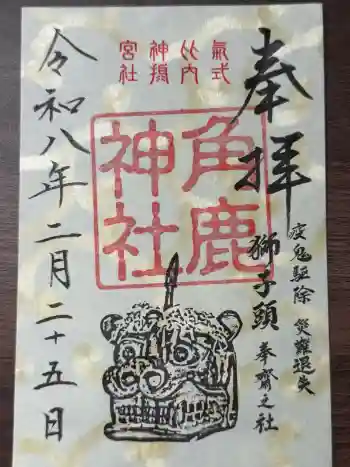 奉拝
疫鬼駆除 災難退失
獅子頭 奉斎之社
式内
神社
角鹿
神社
令和八年二月二十五日